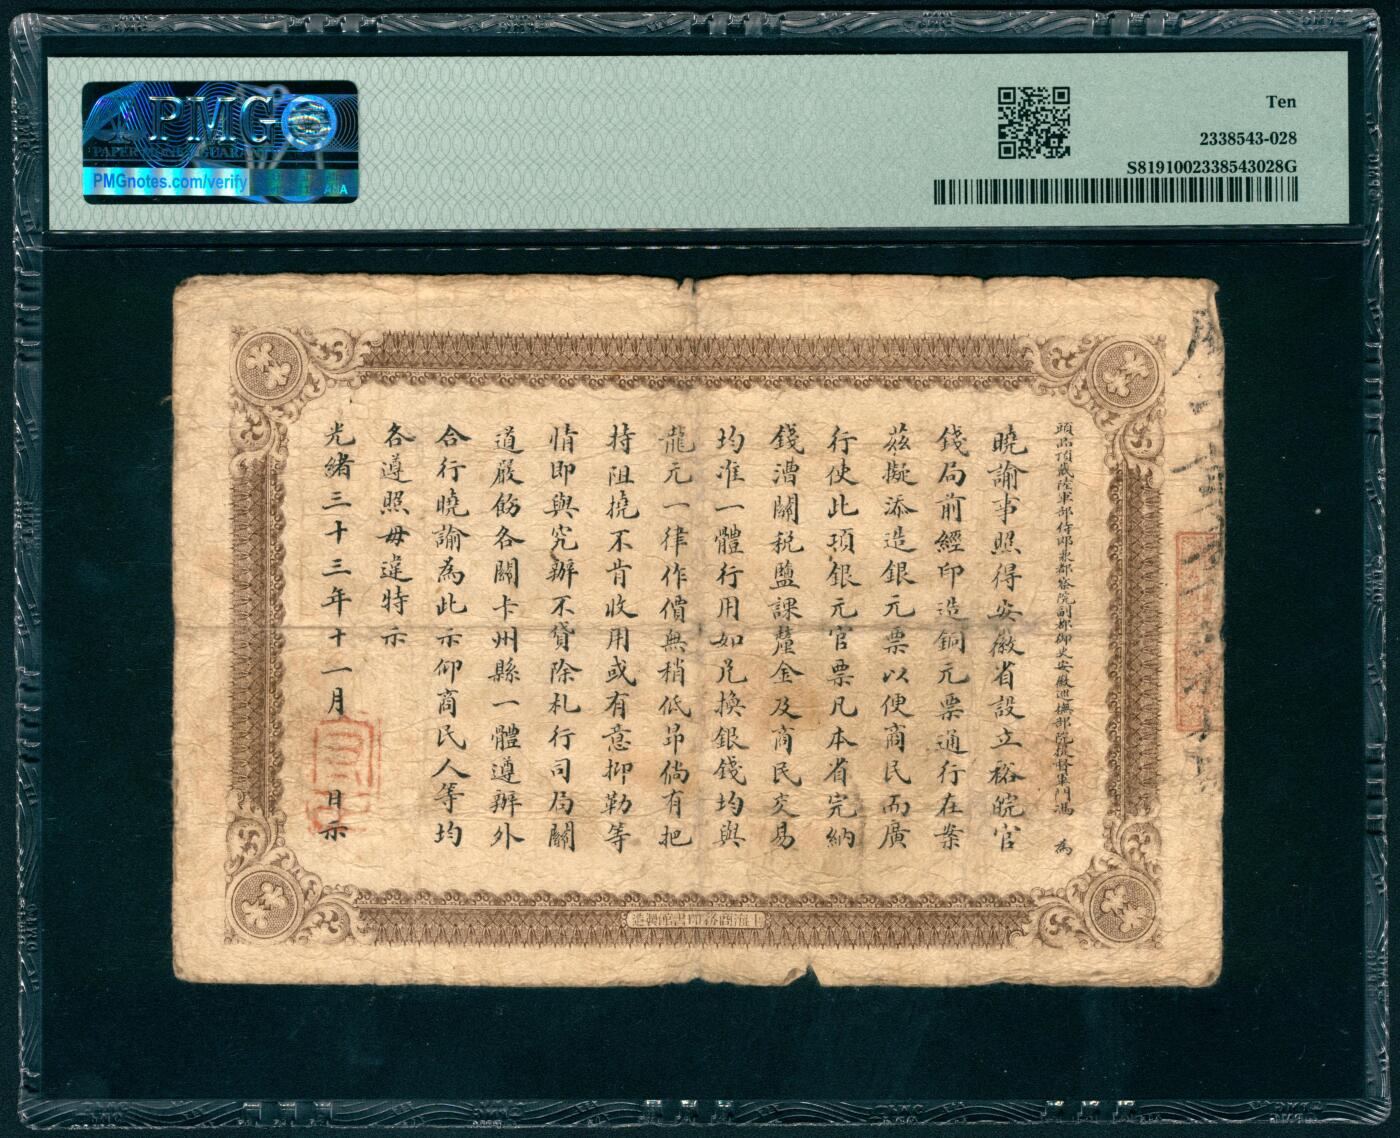 PMG
PAPER MONEY GUARANTY
PMGnotes.com/verify
ANA
Ten
2338543-028
S8191002338543028G
頭品頂戴陸軍部侍郎兼都察院副都御史安徽巡撫部院提督軍門馮　為
曉諭事照得安徽省設立裕皖官
錢局前經印造銅元票通行在案
茲擬添造銀元票以便商民而廣
行使此項銀元官票凡本省完納
錢漕關稅鹽課釐金及商民交易
均准一體行用如兌換銀錢均與
龍元一律作價無稍低昂倘有把
持阻撓不肯收用或有意抑勒等
情即與究辦不貸除札行司局關
道嚴飭各關卡州縣一體遵辦外
合行曉諭為此示仰商民人等均
各遵照毋違特示
光緒三十三年十一月　日示
上海商務印書館製造